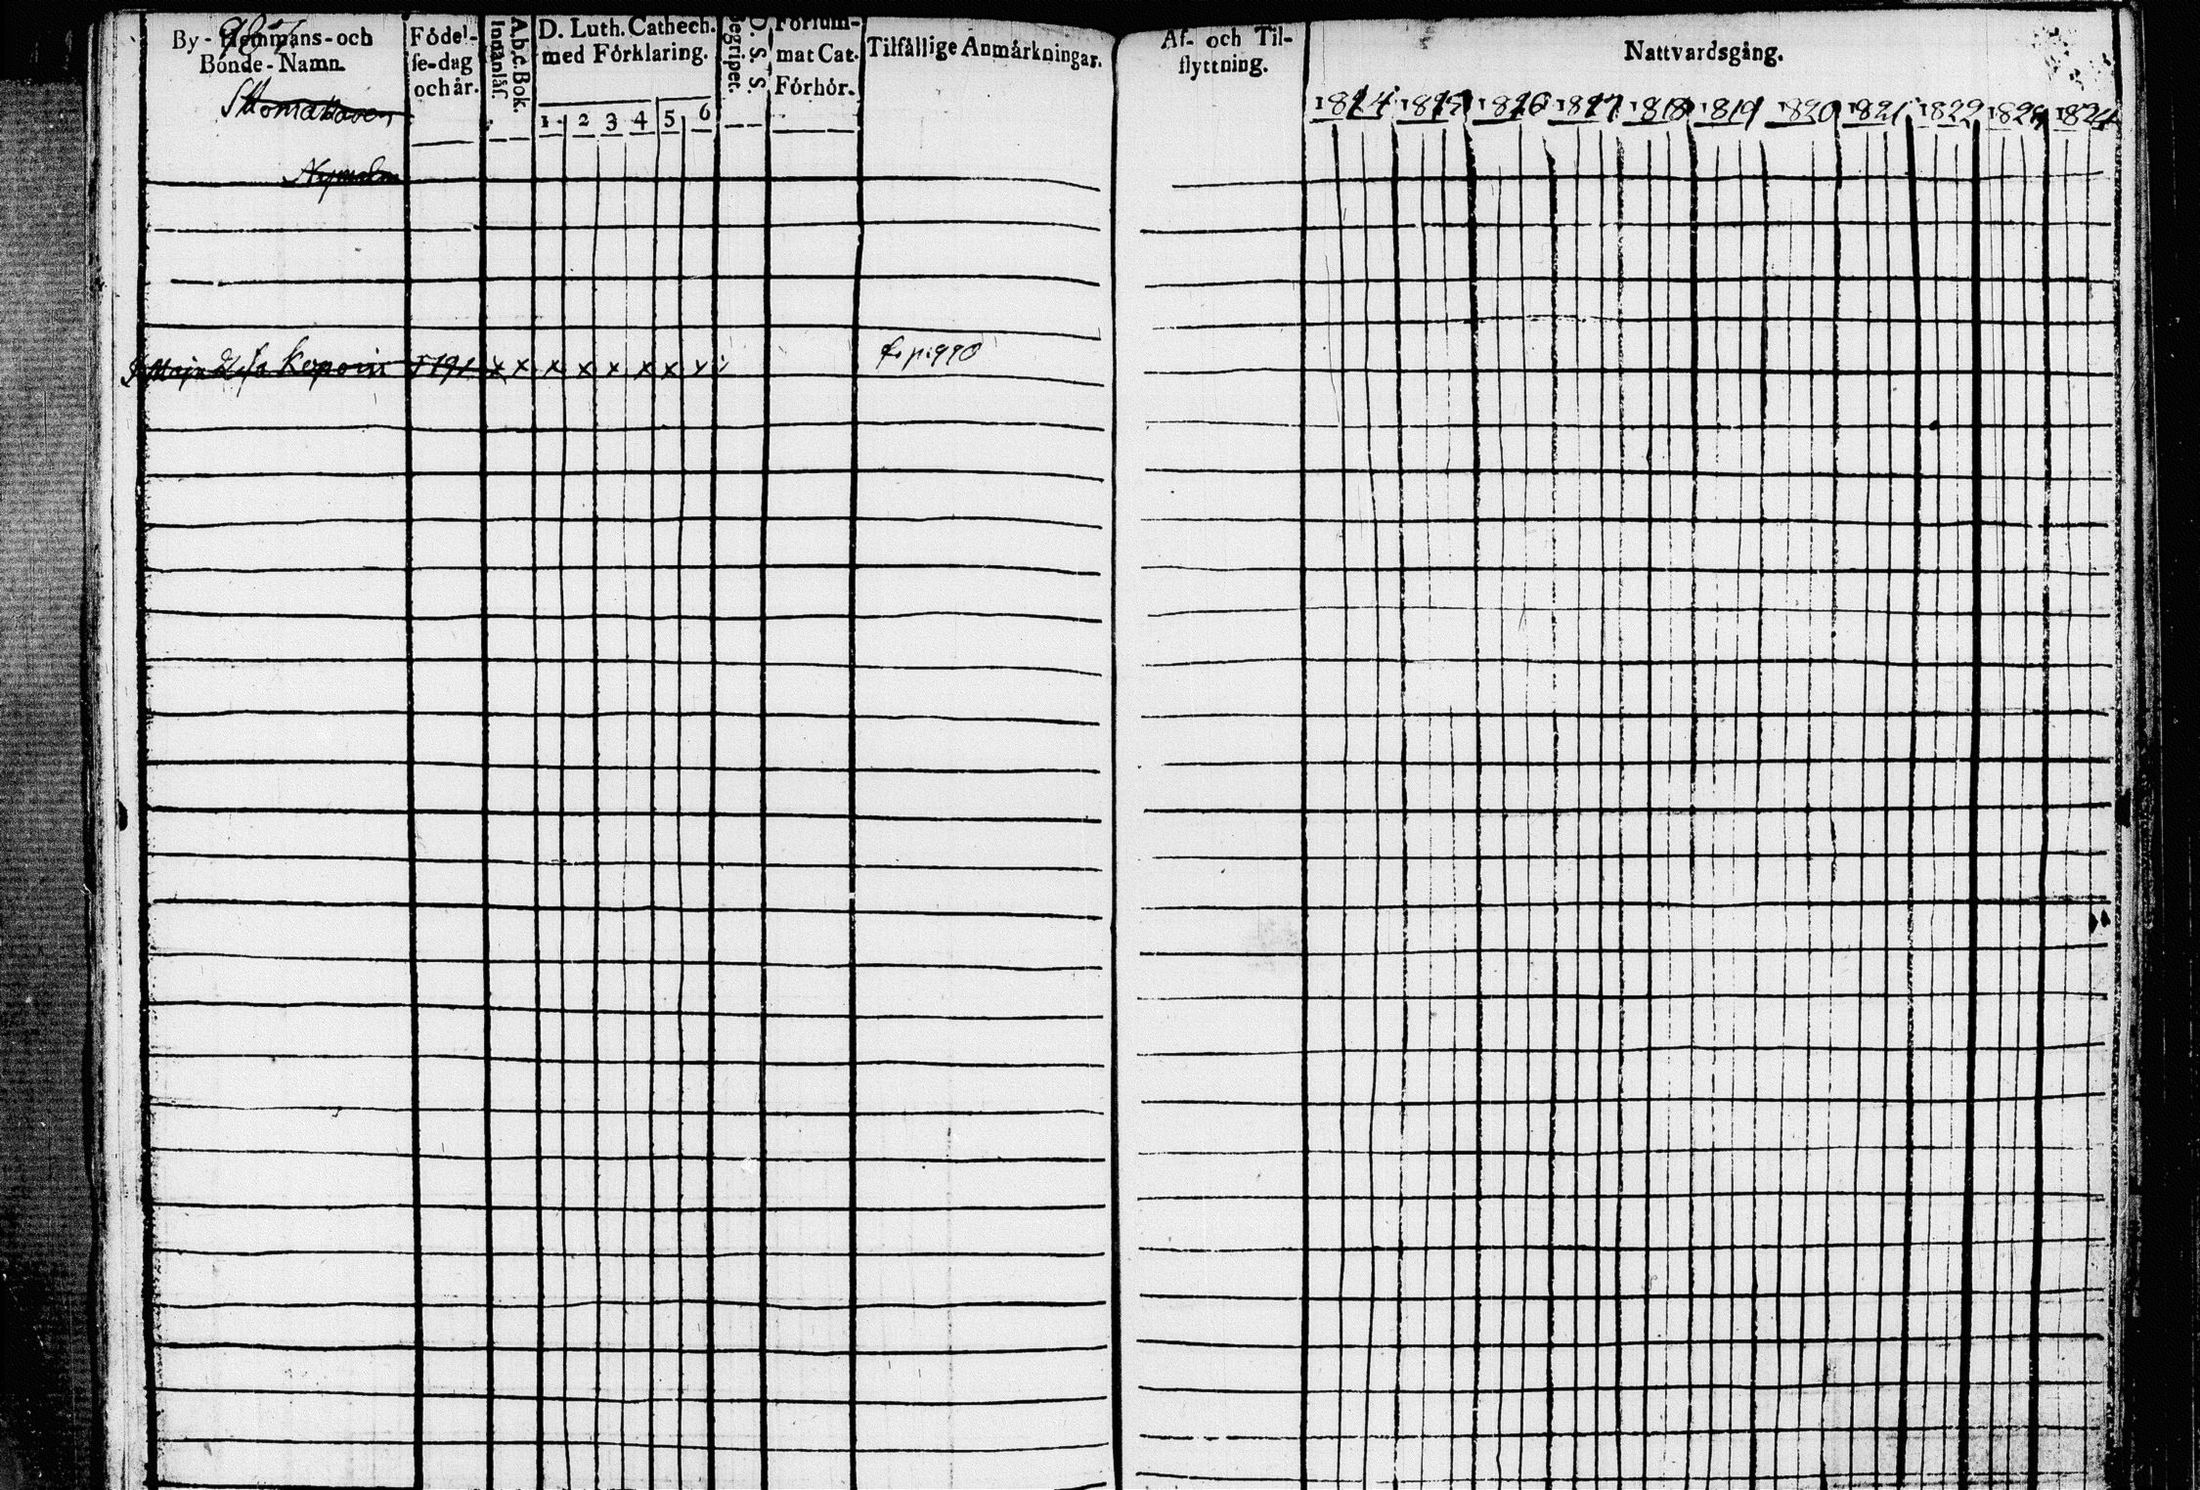 By-Hemmans-och
Bönde-Namn.
Födel-
se-dag
och år.
Innanläs.
A.b.c Bok.
D. Luth. Cathech.
med Förklaring.
1 2 3 4 5 6
Begripet.
D. S. S.
Försum-
mat Cat.
Förhör.
Tilfällige Anmärkningar.
Af- och Til-
flyttning.
Nattvardsgång.
1814 1815 1816 1817 1818 1819 1820 1821 1822 1823 1824
Kepoin 1791 x x x x x x x x
f. p: 990